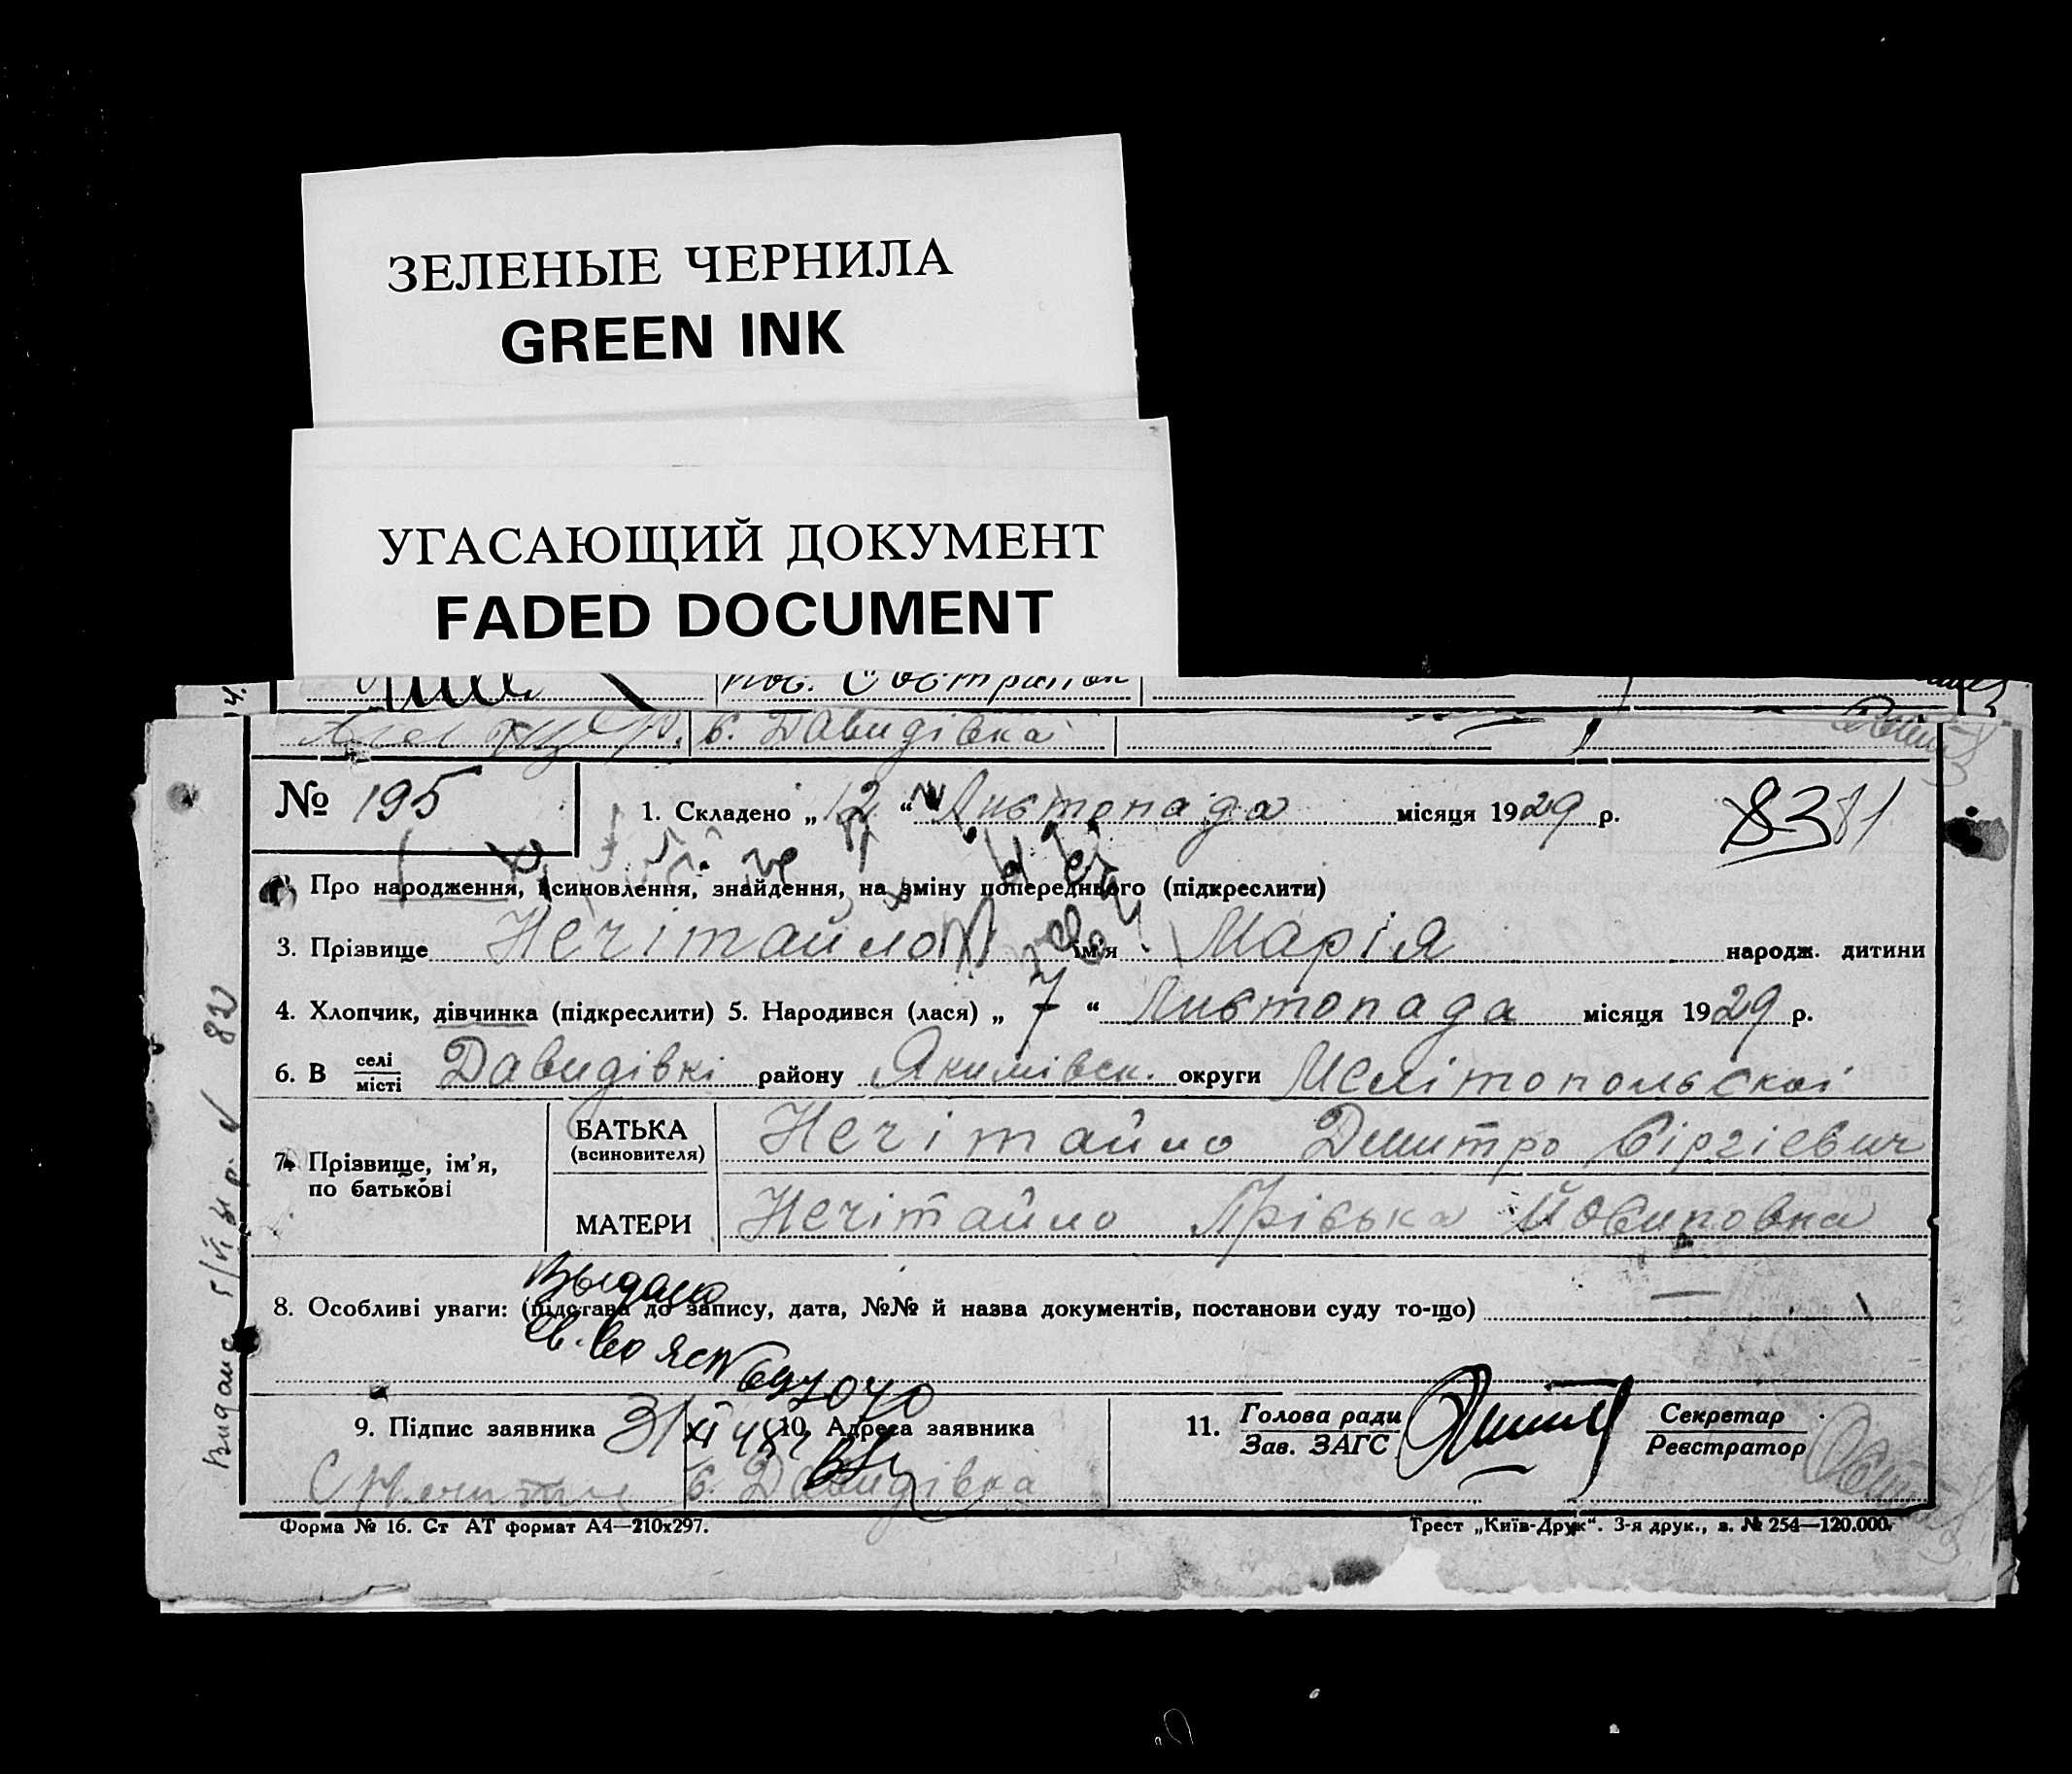 ЗЕЛЕНЫЕ ЧЕРНИЛА
GREEN INK
УГАСАЮЩИЙ ДОКУМЕНТ
FADED DOCUMENT
с. Давидівка
№ 195
1. Складено „12“ Листопада місяця 1929 р.
8381
Про народження, всиновлення, знайдення, на зміну попереднього (підкреслити)
3. Прізвище Нечітайло ім'я Марія народж. дитини
4. Хлопчик, дівчинка (підкреслити) 5. Народився (лася) „7“ Листопада місяця 1929 р.
6. В селі/місті Давидівкі району Якимівск. округи Мелітопольскої
7. Прізвище, ім'я, по батькові
БАТЬКА (всиновителя) Нечітайло Дмитро Сіргієвич
МАТЕРИ Нечітайло Пріська Йосиповна
8. Особливі уваги: (підстава до запису, дата, №№ й назва документів, постанови суду то-що)
Выдано
св-во ЯС №
31/XI 48
9. Підпис заявника
10. Адреса заявника
с. Давидівка
11. Голова ради
Зав. ЗАГС
Секретар
Реєстратор
Форма № 16. Ст АТ формат А4—210x297.
Трест „Київ-Друк“. 3-я друк., з. № 254—120.000.
Видано 5/VI